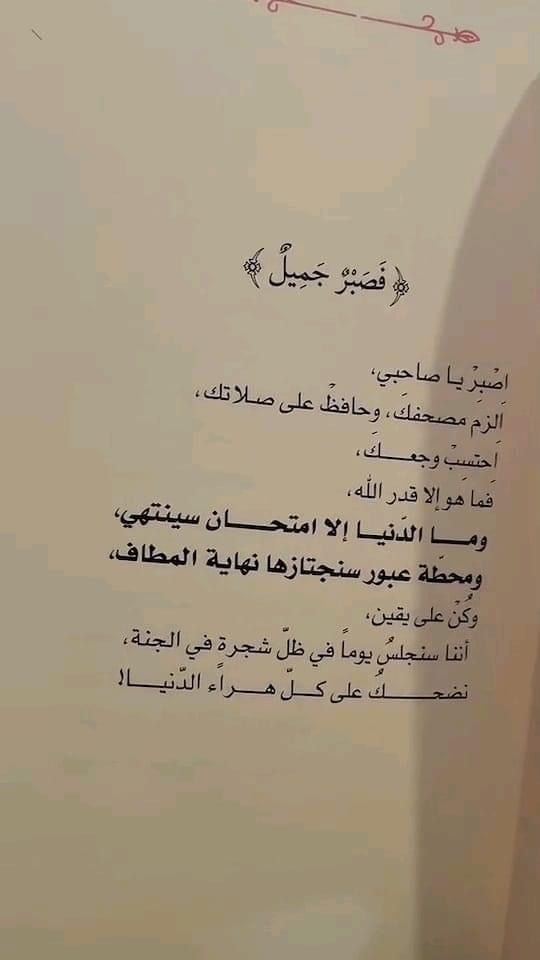 ﴿ فَصَبْرٌ جَمِيلٌ ﴾
اِصْبِرْ يا صاحِبي،
اِلزم مصحفكَ، وحافظْ على صلاتك،
اِحتسِبْ وجعـــكَ،
فما هو إلا قدر الله،
ومــا الدّنيــا إلا امتحــان سينتهي،
ومحطّة عبور سنجتازها نهاية المطاف،
وكُنْ على يقين،
أننا سنجلسُ يوماً في ظلّ شجرة في الجنة،
نضحــكُ على كــلّ هــراء الدّنيــا!